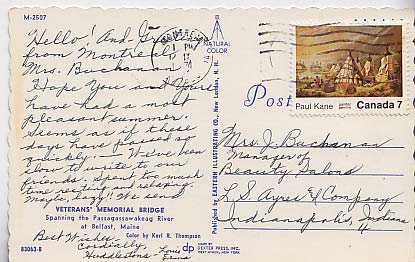 M-2507
Hello! And
from Montreal
Mrs. Buchanan.
Hope You and Yours
have had a most
pleasant summer.
Seems as if these
days have passed so
quickly. We've been
slow to write to our
friends. Spent too much
time resting and relaxing.
Maybe, lazy!! We send
VETERANS' MEMORIAL BRIDGE
Spanning the Passagassawakeag River
at Belfast, Maine
Color by Karl R. Thompson
83063-B
Best Wishes.
Cordially,
Huddlestons
Louis
Erma
NATURAL
COLOR
Published by EASTERN ILLUSTRATING CO., New London, N. H.
dp
MADE BY
DEXTER PRESS, INC.
West Nyack, New York
MONTREAL
PM
Post
Paul Kane
Canada 7
Mrs. J. Buchanan
Manager of
Beauty Salons
L. S. Ayres & Company
Indianapolis, Indiana
4